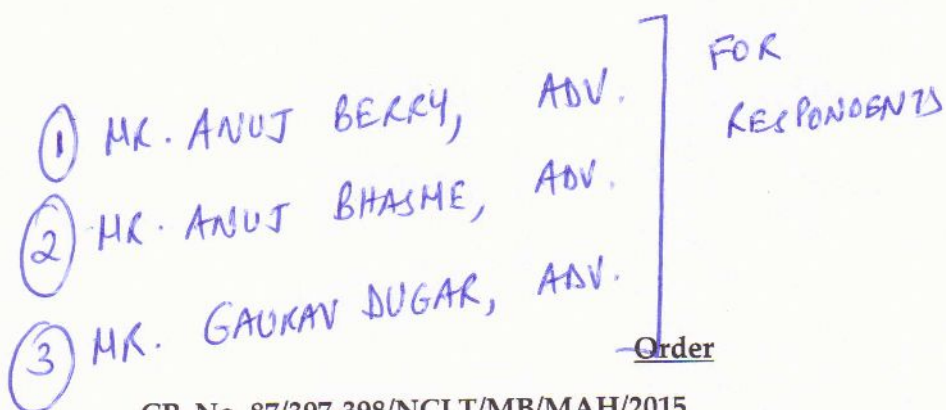 ① MR. ANUJ BERRY, ADV.
② MR. ANUJ BHASME, ADV.
③ MR. GAURAV DUGAR, ADV.
FOR
RESPONDENTS
Order
CP. No. 87/397-398/NCLT/MB/MAH/2015